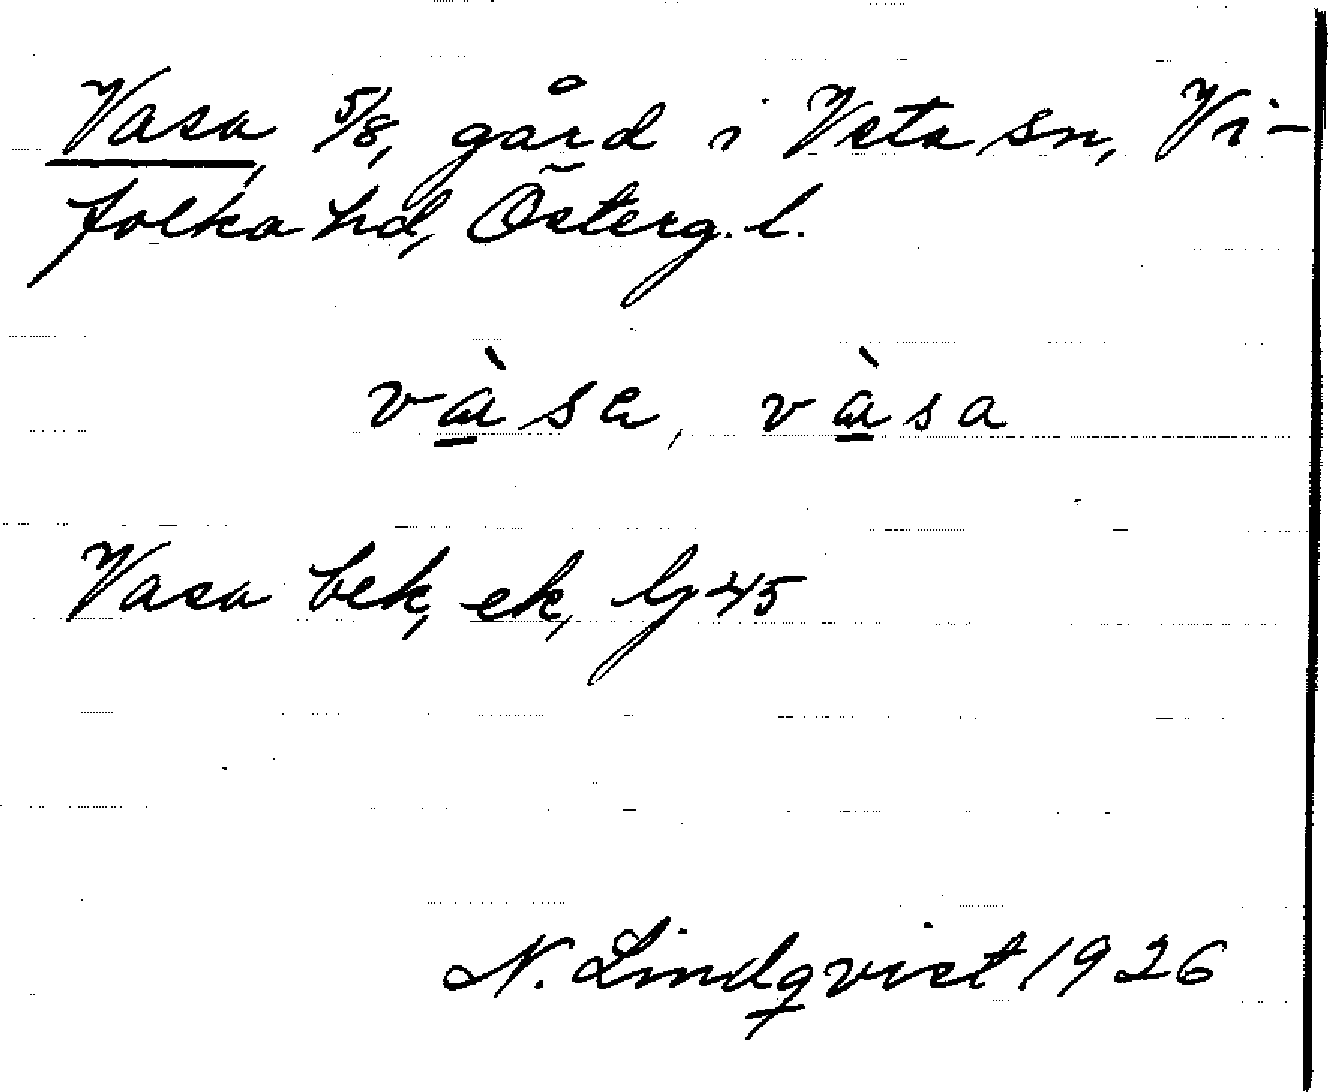 Vasa, 5/8, gård i Veta sn, Vi-
folka hd, Österg. l.
vàsa, vàsa
Vasa bek, ek, lj 45
N. Lindqvist 1926